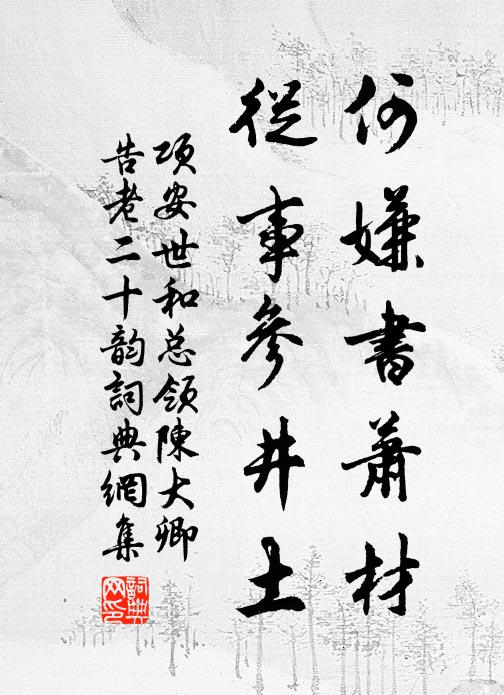 何嫌書蕭材
從事參井土
項安世和总领陳大卿
告老二十韵詞典網集